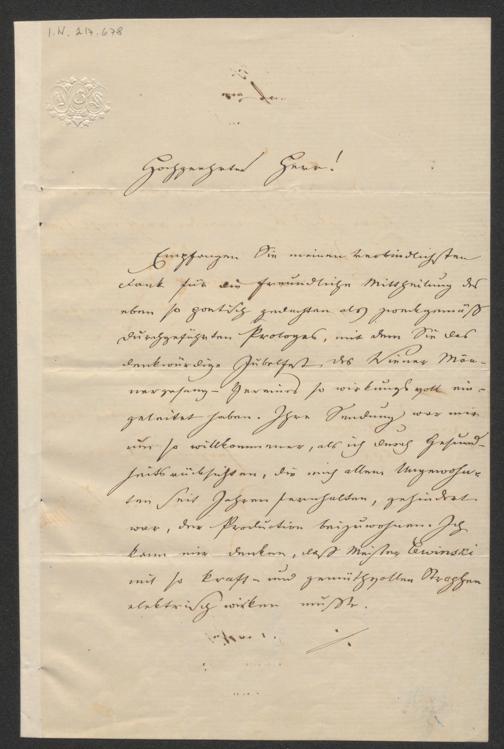 I.N. 217.678
Hochgeehrter Herr!
Empfangen Sie meinen verbindlichsten
Dank für die freundliche Mittheilung des
eben so poetisch gedachten als zweckgemäß
durchgeführten Prologes, mit dem Sie das
denkwürdige Jubelfest des Wiener Män-
nergesang-Vereines so wirkungsvoll ein-
geleitet haben. Ihre Sendung war mir
um so willkommener, als ich durch Gesund-
heitsrücksichten, die mich allem Ungewohn-
ten seit Jahren fernhalten, gehindert
war, der Production beizuwohnen. Ich
kann mir denken, daß Meister Lewinski
mit so kraft- und gemüthvollen Strophen
elektrisch wirken mußte.